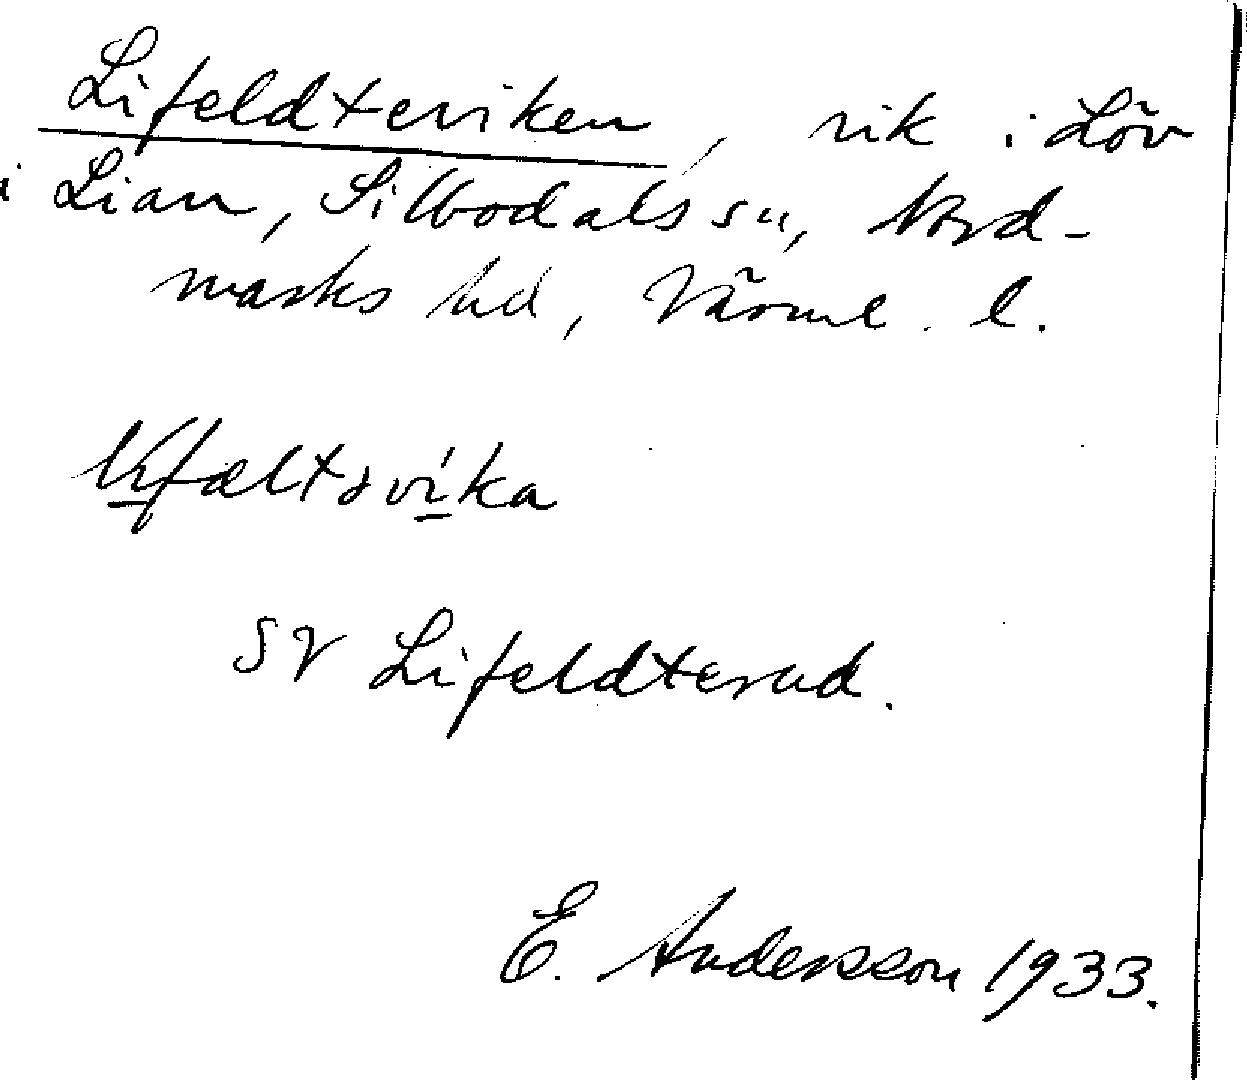 Lifeldterviken, vik i Löv
i Lian, Silbodals sn, Nord-
marks hd, Värml. l.
lifæltəvíka
SV Lifeldterud.
E. Andersson 1933.